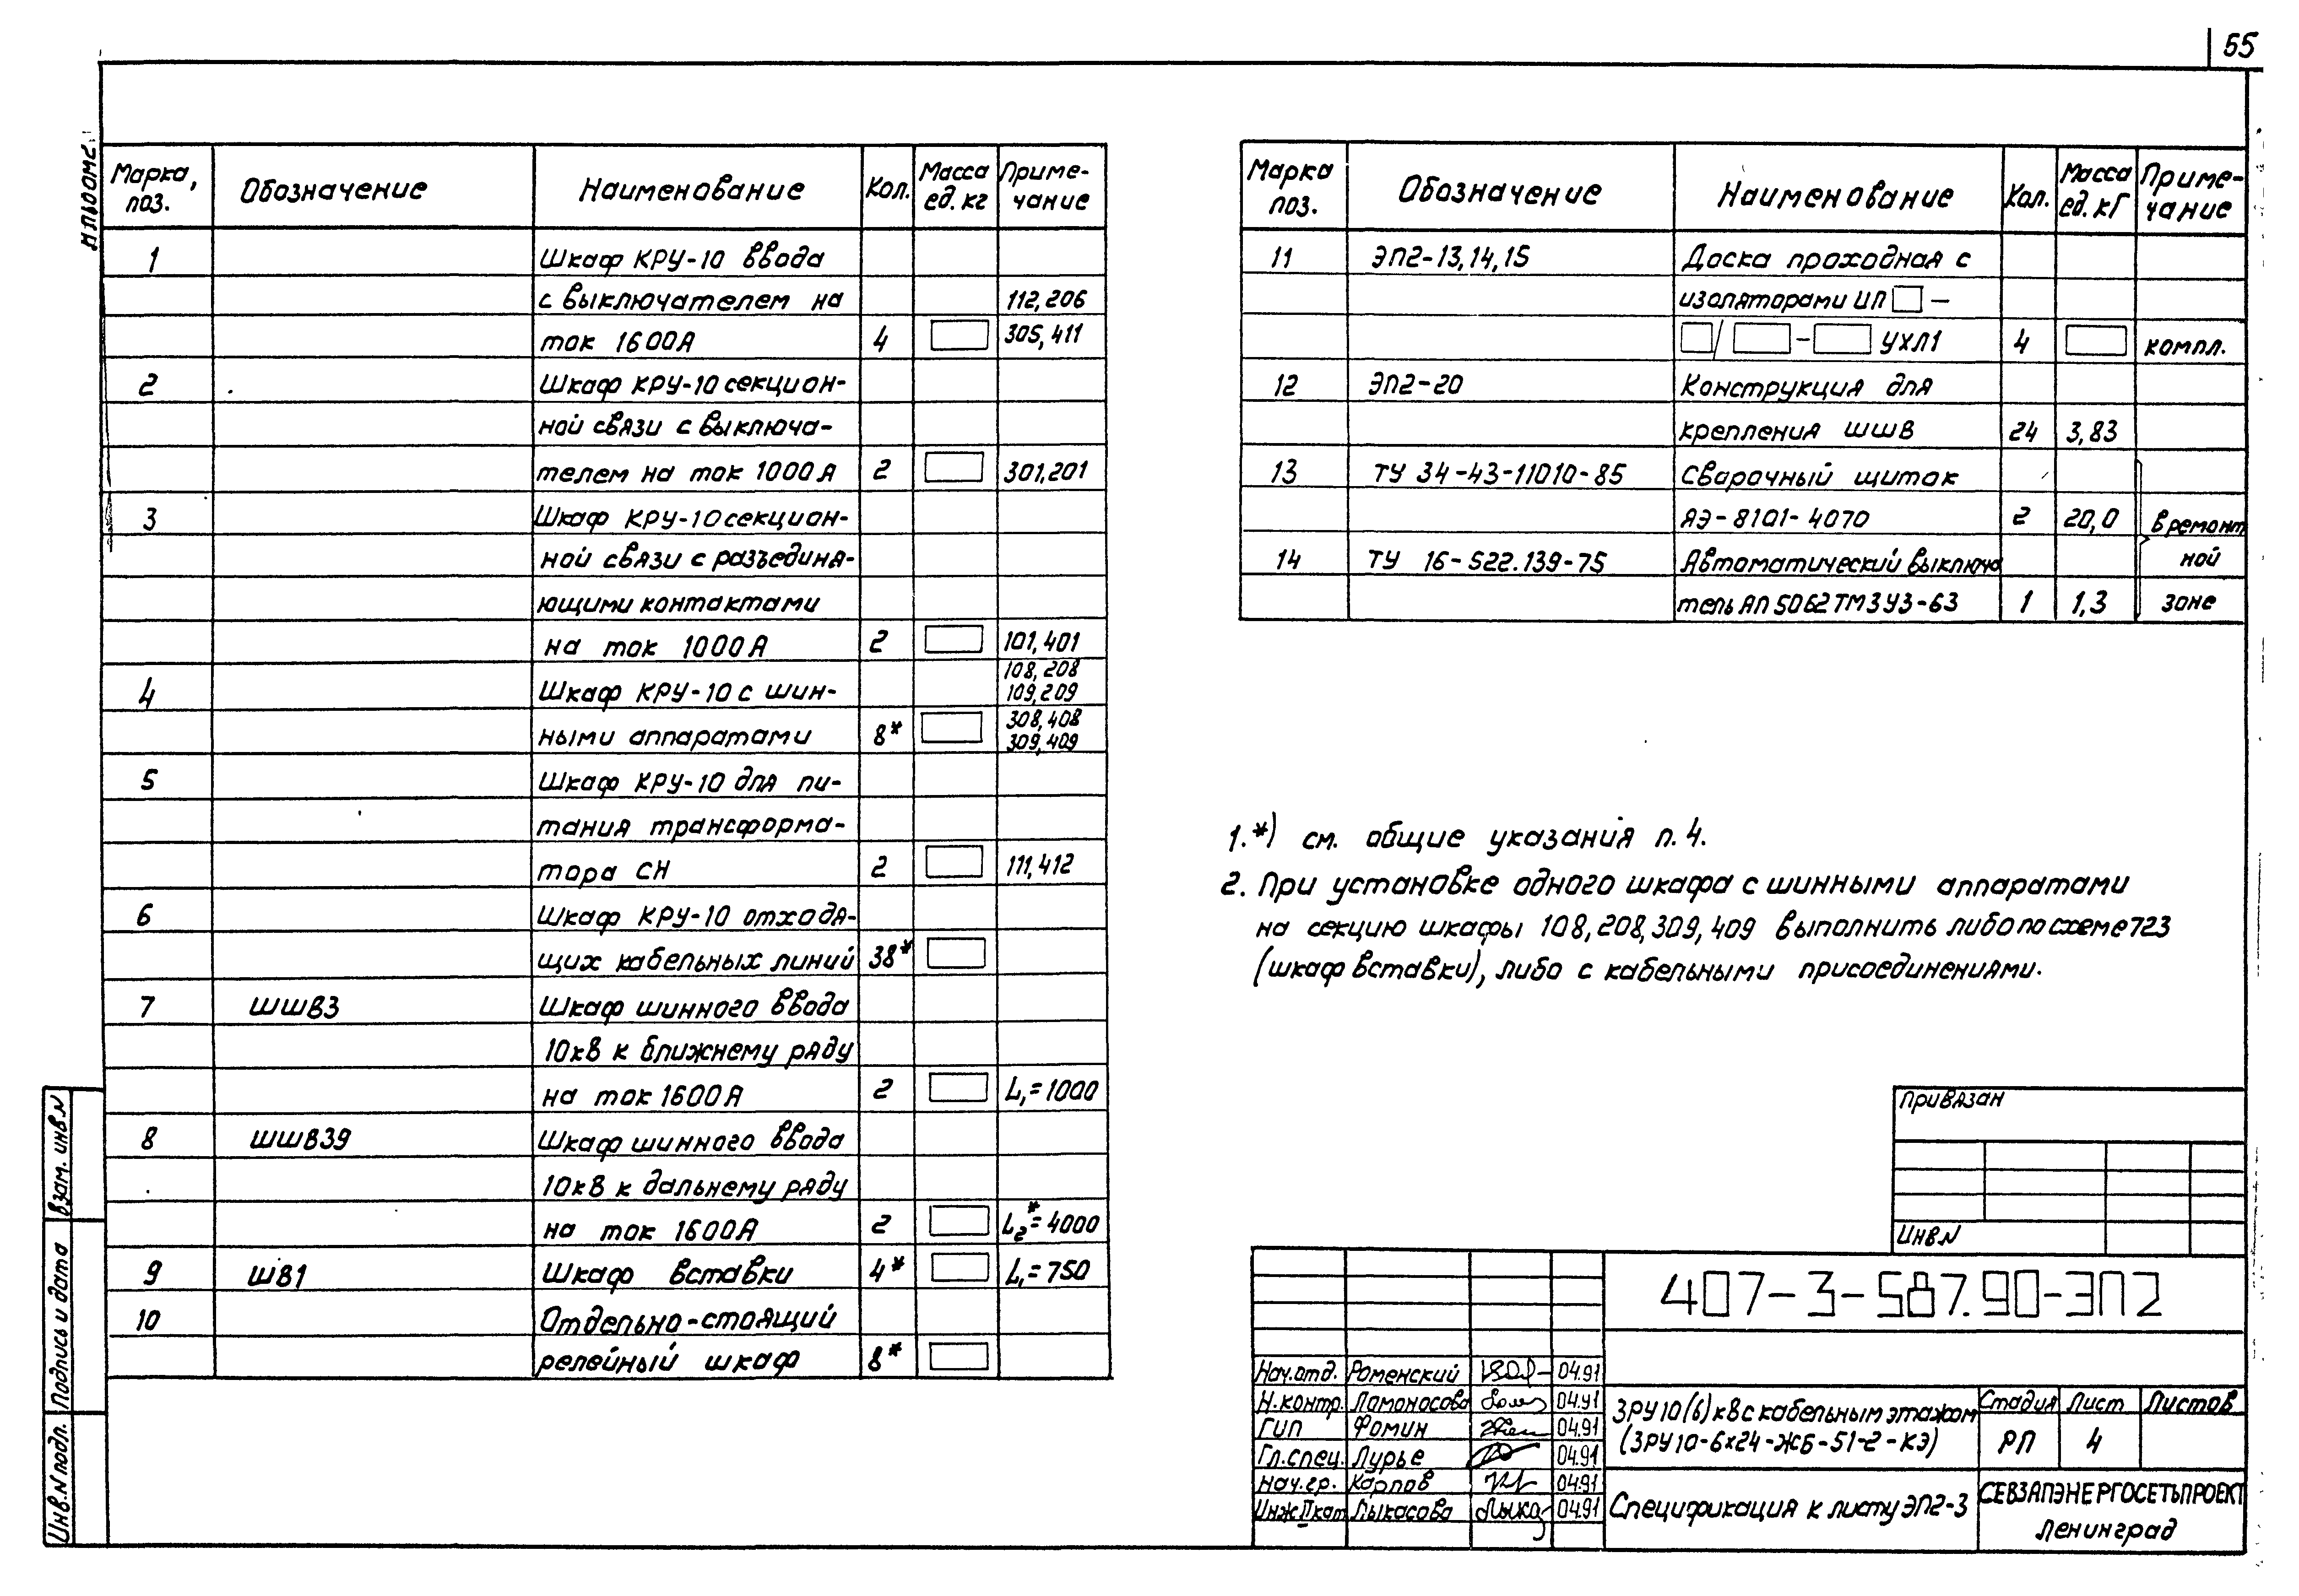 55
Альбом 2
Марка, поз. Обозначение Наименование Кол. Масса ед. кг Приме-чание
1 Шкаф КРУ-10 ввода
с выключателем на 112,206
ток 1600А 4 305,411
2 Шкаф КРУ-10 секцион-
ной связи с выключа-
телем на ток 1000А 2 301,201
3 Шкаф КРУ-10 секцион-
ной связи с разъединя-
ющими контактами
на ток 1000А 2 101,401
108,208
4 Шкаф КРУ-10 с шин- 109,209
308,408
ными аппаратами 8* 309,409
5 Шкаф КРУ-10 для пи-
тания трансформа-
тора СН 2 111,412
6 Шкаф КРУ-10 отходя-
щих кабельных линий 38*
7 ШШВ3 Шкаф шинного ввода
10кВ к ближнему ряду
на ток 1600А 2 L₁=1000
8 ШШВ39 Шкаф шинного ввода
10кВ к дальнему ряду
на ток 1600А 2 L₂*=4000
9 ШВ1 Шкаф вставки 4* L₁=750
10 Отдельно-стоящий
релейный шкаф 8*
Марка поз. Обозначение Наименование Кол. Масса ед. кг Приме-чание
11 ЭП2-13,14,15 Доска проходная с
изоляторами ИП □ –
□/□-□ УХЛ1 4 компл.
12 ЭП2-20 Конструкция для
крепления ШШВ 24 3,83
13 ТУ 34-43-11010-85 Сварочный щиток
ЯЭ-8101-4070 2 20,0 в ремонт
14 ТУ 16-522.139-75 Автоматический выключа ной
тель АП50Б2ТМ3У3-63 1 1,3 зоне
1.*) см. общие указания п.4.
2. При установке одного шкафа с шинными аппаратами
на секцию шкафы 108,208,309,409 выполнить либо по схеме 723
(шкаф вставки), либо с кабельными присоединениями.
Привязан
Инв.N
407-3-587.90-ЭП2
Нач.отд. Роменский 04.91
Н.контр. Ломоносова 04.91
ГИП Фомин 04.91
Гл.спец. Лурье 04.91
Нач.гр. Карпов 04.91
Инж.IIкат Лыкасова 04.91
ЗРУ10(6)кВ с кабельным этажом
(ЗРУ10-6х24-ЖБ-51-2-КЭ)
Стадия Лист Листов
РП 4
Спецификация к листу ЭП2-3
СЕВЗАПЭНЕРГОСЕТЬПРОЕКТ
Ленинград
Взам. инв.N
Подпись и дата
Инв.N подл.